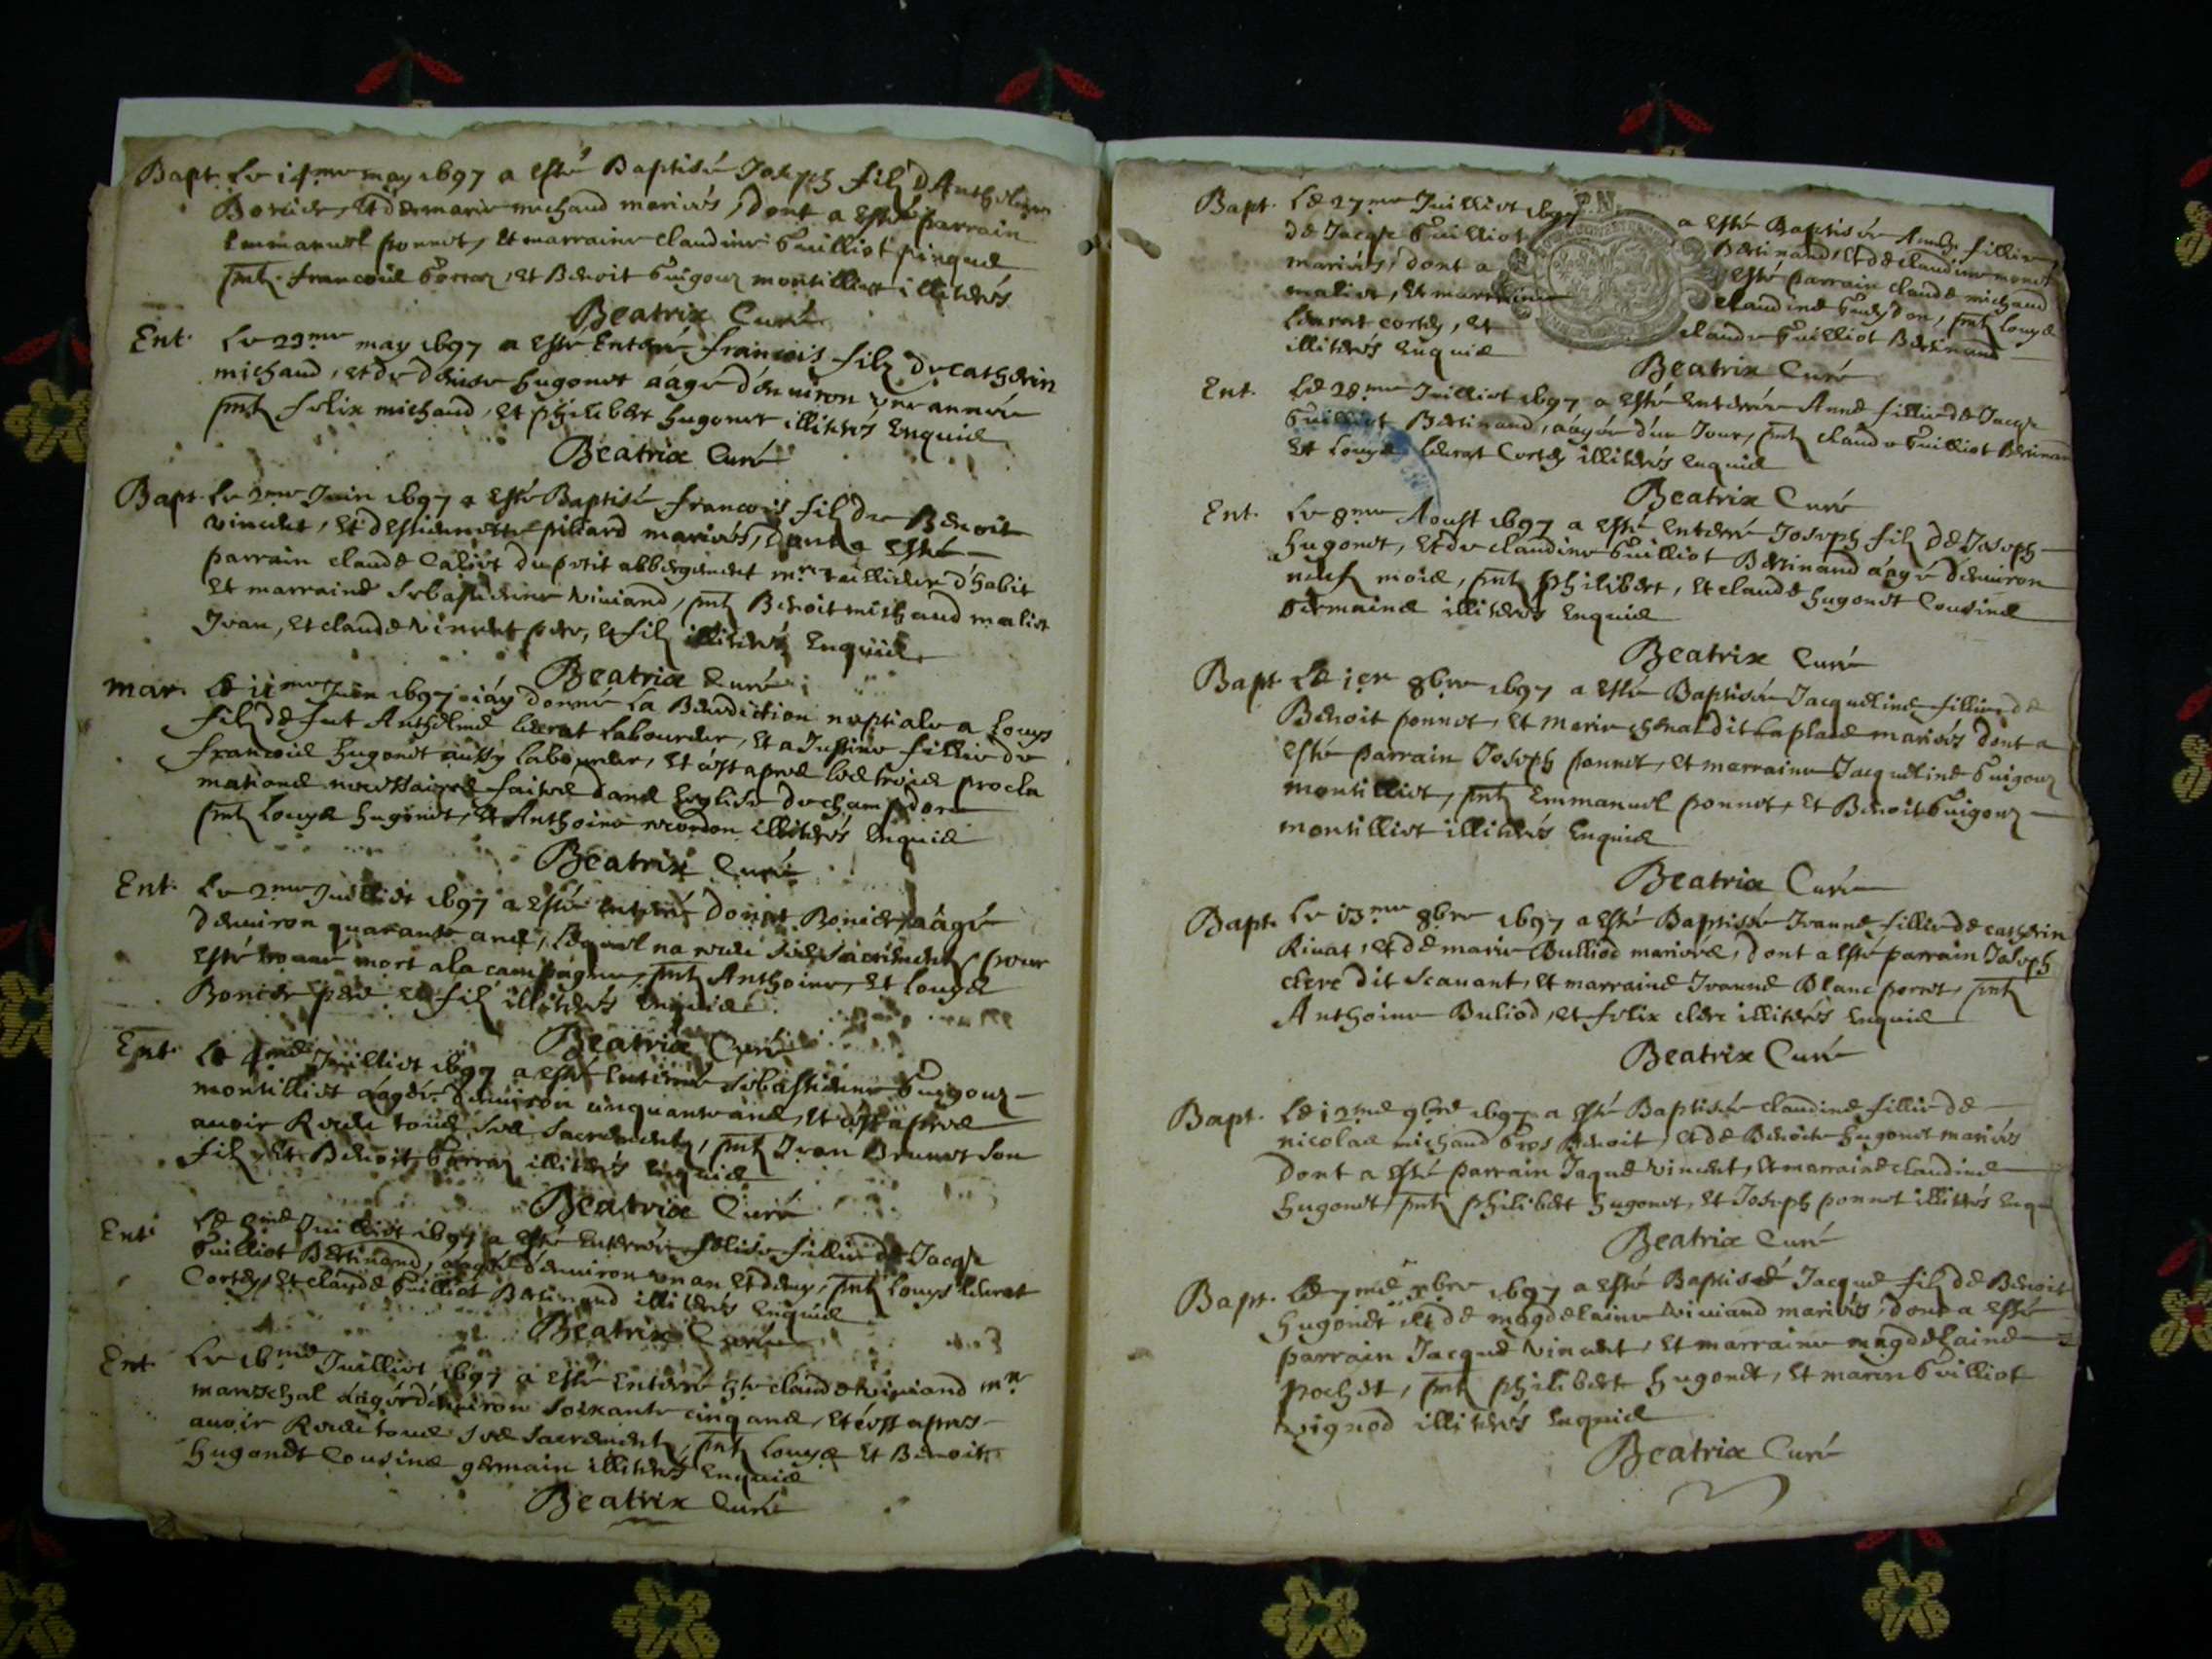 Bapt. Le 14me may 1697 a esté Baptisé Joseph filz d'Anthelme
Bonier, et de marie michaud mariés, dont a esté parrain
Emmanuel ponnet, et marraine claudine Guilliot pinque
pntz francois Gorraz, et Benoit Guigouz montilliet illiterés
Beatrix Curé
Ent. Le 23me may 1697 a esté Enterré francois filz de catherin
michaud, et de denise hugonet aágé d'enuiron une année
pntz felix michaud, et philibert hugonet illiterés Enquis
Beatrix Curé
Bapt. Le 2me Juin 1697 a esté Baptisé francois filz de Benoit
vincent, et d'Estiennette pilliard mariés, dont a esté
parrain claude Caliet du petit abbergement mre taillieur d'habit
et marraine sebastienne viuiand, pntz Benoit michaud maliet
Jean, et claude vincent pere, et filz illiterés Enquis
Beatrix Curé
mar. Le 11me Juin 1697 iáy donné la Benediction nuptiale a Louys
filz de feu Anthelme Leurat Laboureur, et a Justine fillie de
francois hugonet aussy laboureur, et cest apres les trois procla
mations necessaires faites dans Leglise de champdore
pntz Louys hugonet, et Anthoine illiterés Enquis
Beatrix Curé
Ent. Le 2me Juilliet 1697 a esté enterré donat Bonier aágé
denuiron quarante ans, lequel na receu ses sacrements pour
esté trouué mort a la campagne, pntz Anthoine, et Louys
Bonier pere et filz illiterés Enquis
Beatrix Curé
Ent. Le 4me Juilliet 1697 a esté Enterré sebastienne Guigouz
montilliet aágée denuiron cinquante ans, et cest apres
auoir Receu tous ses sacrements, pntz Jean Brunet son
filz, et Benoit Gorraz illiterés Enquis
Beatrix Curé
Ent. Le 8me Juilliet 1697 a esté Enterrée felise fillie de Jacqe
Guilliot Bertinand, aagée d'enuiron un an et demy, pntz Louys Leurat
Cortez, et claude Guilliot Bertinand illiterés Enquis
Beatrix Curé
Ent. Le 16me Juilliet 1697 a esté Enterré claude viuiand mre
mareschal aágé d'enuiron soixante cinq ans, et cest apres
auoir Receu tous ses sacrements, pntz Louys et Benoit
hugonet Cousins germain illiterés Enquis
Beatrix Curé
Bapt. Le 27me Juilliet 1697 a esté Baptisée fillie
de Jacqe Guilliot Bertinand, et de claudine
mariés, dont a esté parrain claude michaud
maliet, et marraine claudine, pntz Louys
Leurat cortez, et claude Guilliot Bertinand
illiterés Enquis
Beatrix Curé
Ent. Le 28me Juilliet 1697 a esté enterrée Anne fillie de Jacqe
Guilliot Bertinand, aágée d'un Jour, pntz claude Guilliot Bertinand
et Louys Leurat Cortez illiterés Enquis
Beatrix Curé
Ent. Le 8me Aoust 1697 a esté Enterré Joseph filz de Joseph
hugonet, et de claudine Guilliot Bertinand aágé denuiron
neuf mois, pntz philibert, et claude hugonet Cousins
Germains illiterés Enquis
Beatrix Curé
Bapt. Le 1er 8bre 1697 a esté Baptisée Jacqueline fillie de
Benoit ponnet, et marie dit la place mariés dont a
esté parrain Joseph ponnet, et marraine Jacqueline Guigouz
montilliet, pntz Emmanuel ponnet, et Benoit Guigouz
montilliet illiterés Enquis
Beatrix Curé
Bapt. Le 13me 8bre 1697 a esté Baptisée Jeanne fillie de catherin
Riuat, et de marie Bulliod mariés, dont a esté parrain Joseph
clerc dit scauant, et marraine Jeanne Blanc perret, pntz
Anthoine Buliod, et felix clerc illiterés Enquis
Beatrix Curé
Bapt. Le 12me 9bre 1697 a esté Baptisée claudine fillie de
nicolas michaud Gros Benoit, et de Benoite hugonet mariés
dont a esté parrain Jaque vincent, et marraine claudine
hugonet, pntz philibert hugonet, et Joseph ponnet illiterés Enqu
Beatrix Curé
Bapt. Le 7me xbre 1697 a esté Baptisé Jacque filz de Benoit
hugonet et de magdelaine viuiand mariés, dont a esté
parrain Jacque vincent, et marraine magdelaine
pochet, pntz philibert hugonet, et marin Guilliot
vignod illiterés Enquis
Beatrix Curé